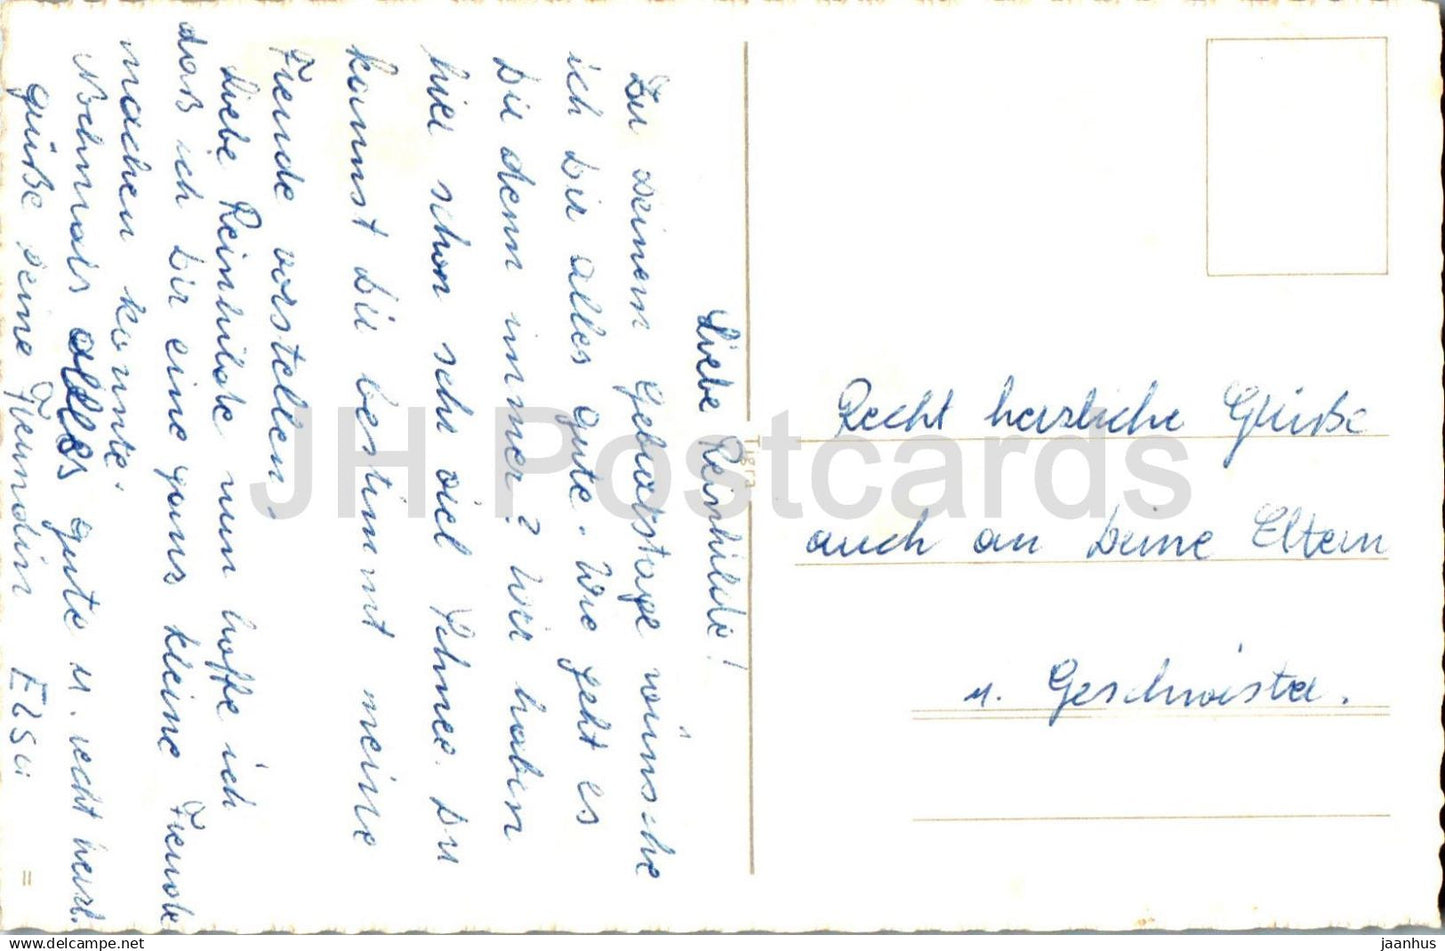 Liebe Reinhilde!
Zu Deinem Gebutstage wünsche
ich Dir alles gute. Wie geht es
Dir denn immer? Wir haben
hier schon sehr viel Schnee. Du
kannst Dir bestimmt meine
Freude vorstellen.
Liebe Reinhilde nun hoffe ich
daß ich Dir eine ganz kleine Freude
machen konnte.
Nochmals alles gute u. recht herzl.
grüße Deine Freundin Elsa
Recht herzliche Grüße
auch an Deine Eltern
u. Geschwister.
Tigra
JH Postcards
delcampe.net
jaanhus